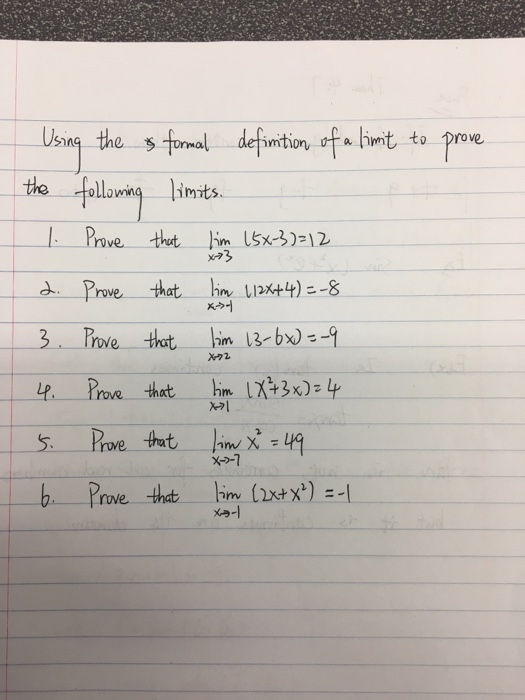 Using the s formal definition of a limit to prove
the following limits.
1. Prove that lim (5x-3)=12
x→3
2. Prove that lim (12x+4)=-8
x→-1
3. Prove that lim (3-6x)=-9
x→2
4. Prove that lim (x²+3x)=4
x→1
5. Prove that lim x²=49
x→-7
6. Prove that lim (2x+x²)=-1
x→-1